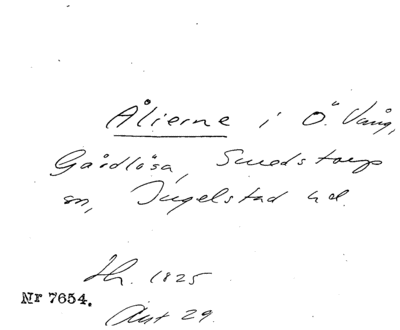 Ålierne i Ö. Vång,
Gårdlösa, Smedstorp
sn, Ingelstad hd.
Lh. 1825
Nr 7654.
Akt 29.